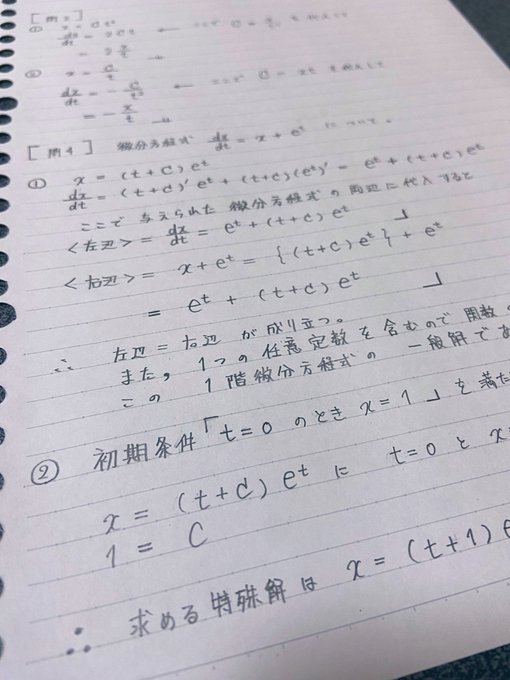 [例3]
①
dx/dt = 2Ct ←
②
x = C/t
dx/dt = - C/t² ←
= - x/t
[例4] 微分方程式 dx/dt = x + e^t について。
① x = (t+C)e^t
dx/dt = (t+C)'e^t + (t+C)(e^t)' = e^t + (t+C)e^t
ここで与えられた微分方程式の両辺に代入すると
<左辺> = dx/dt = e^t + (t+C)e^t 」
<右辺> = x + e^t = {(t+C)e^t} + e^t
= e^t + (t+C)e^t 」
∴ 左辺 = 右辺 が成り立つ。
また, 1つの任意定数を含むので関数
この 1階微分方程式の 一般解で
② 初期条件「t=0 のとき x=1」を満た
x = (t+C)e^t に t=0 と x
1 = C
∴ 求める特殊解は x = (t+1)e